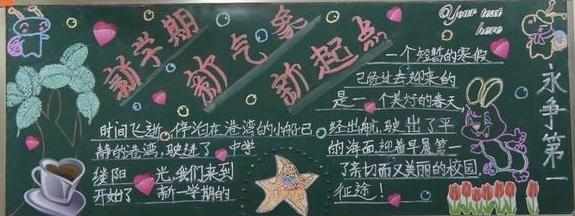 新学期
新气象
新起点
Your text
here
一个短暂的寒假
已经过去迎来的
是一个美好的春天
时间飞逝,停泊在港湾的小船已
静的港湾,驶进了 中学
缕阳 光,我们来到
开始了 新一学期的
经出航,驶出了平
的海面迎着早晨第一
了亲切而又美丽的校园
征途!
永争第一